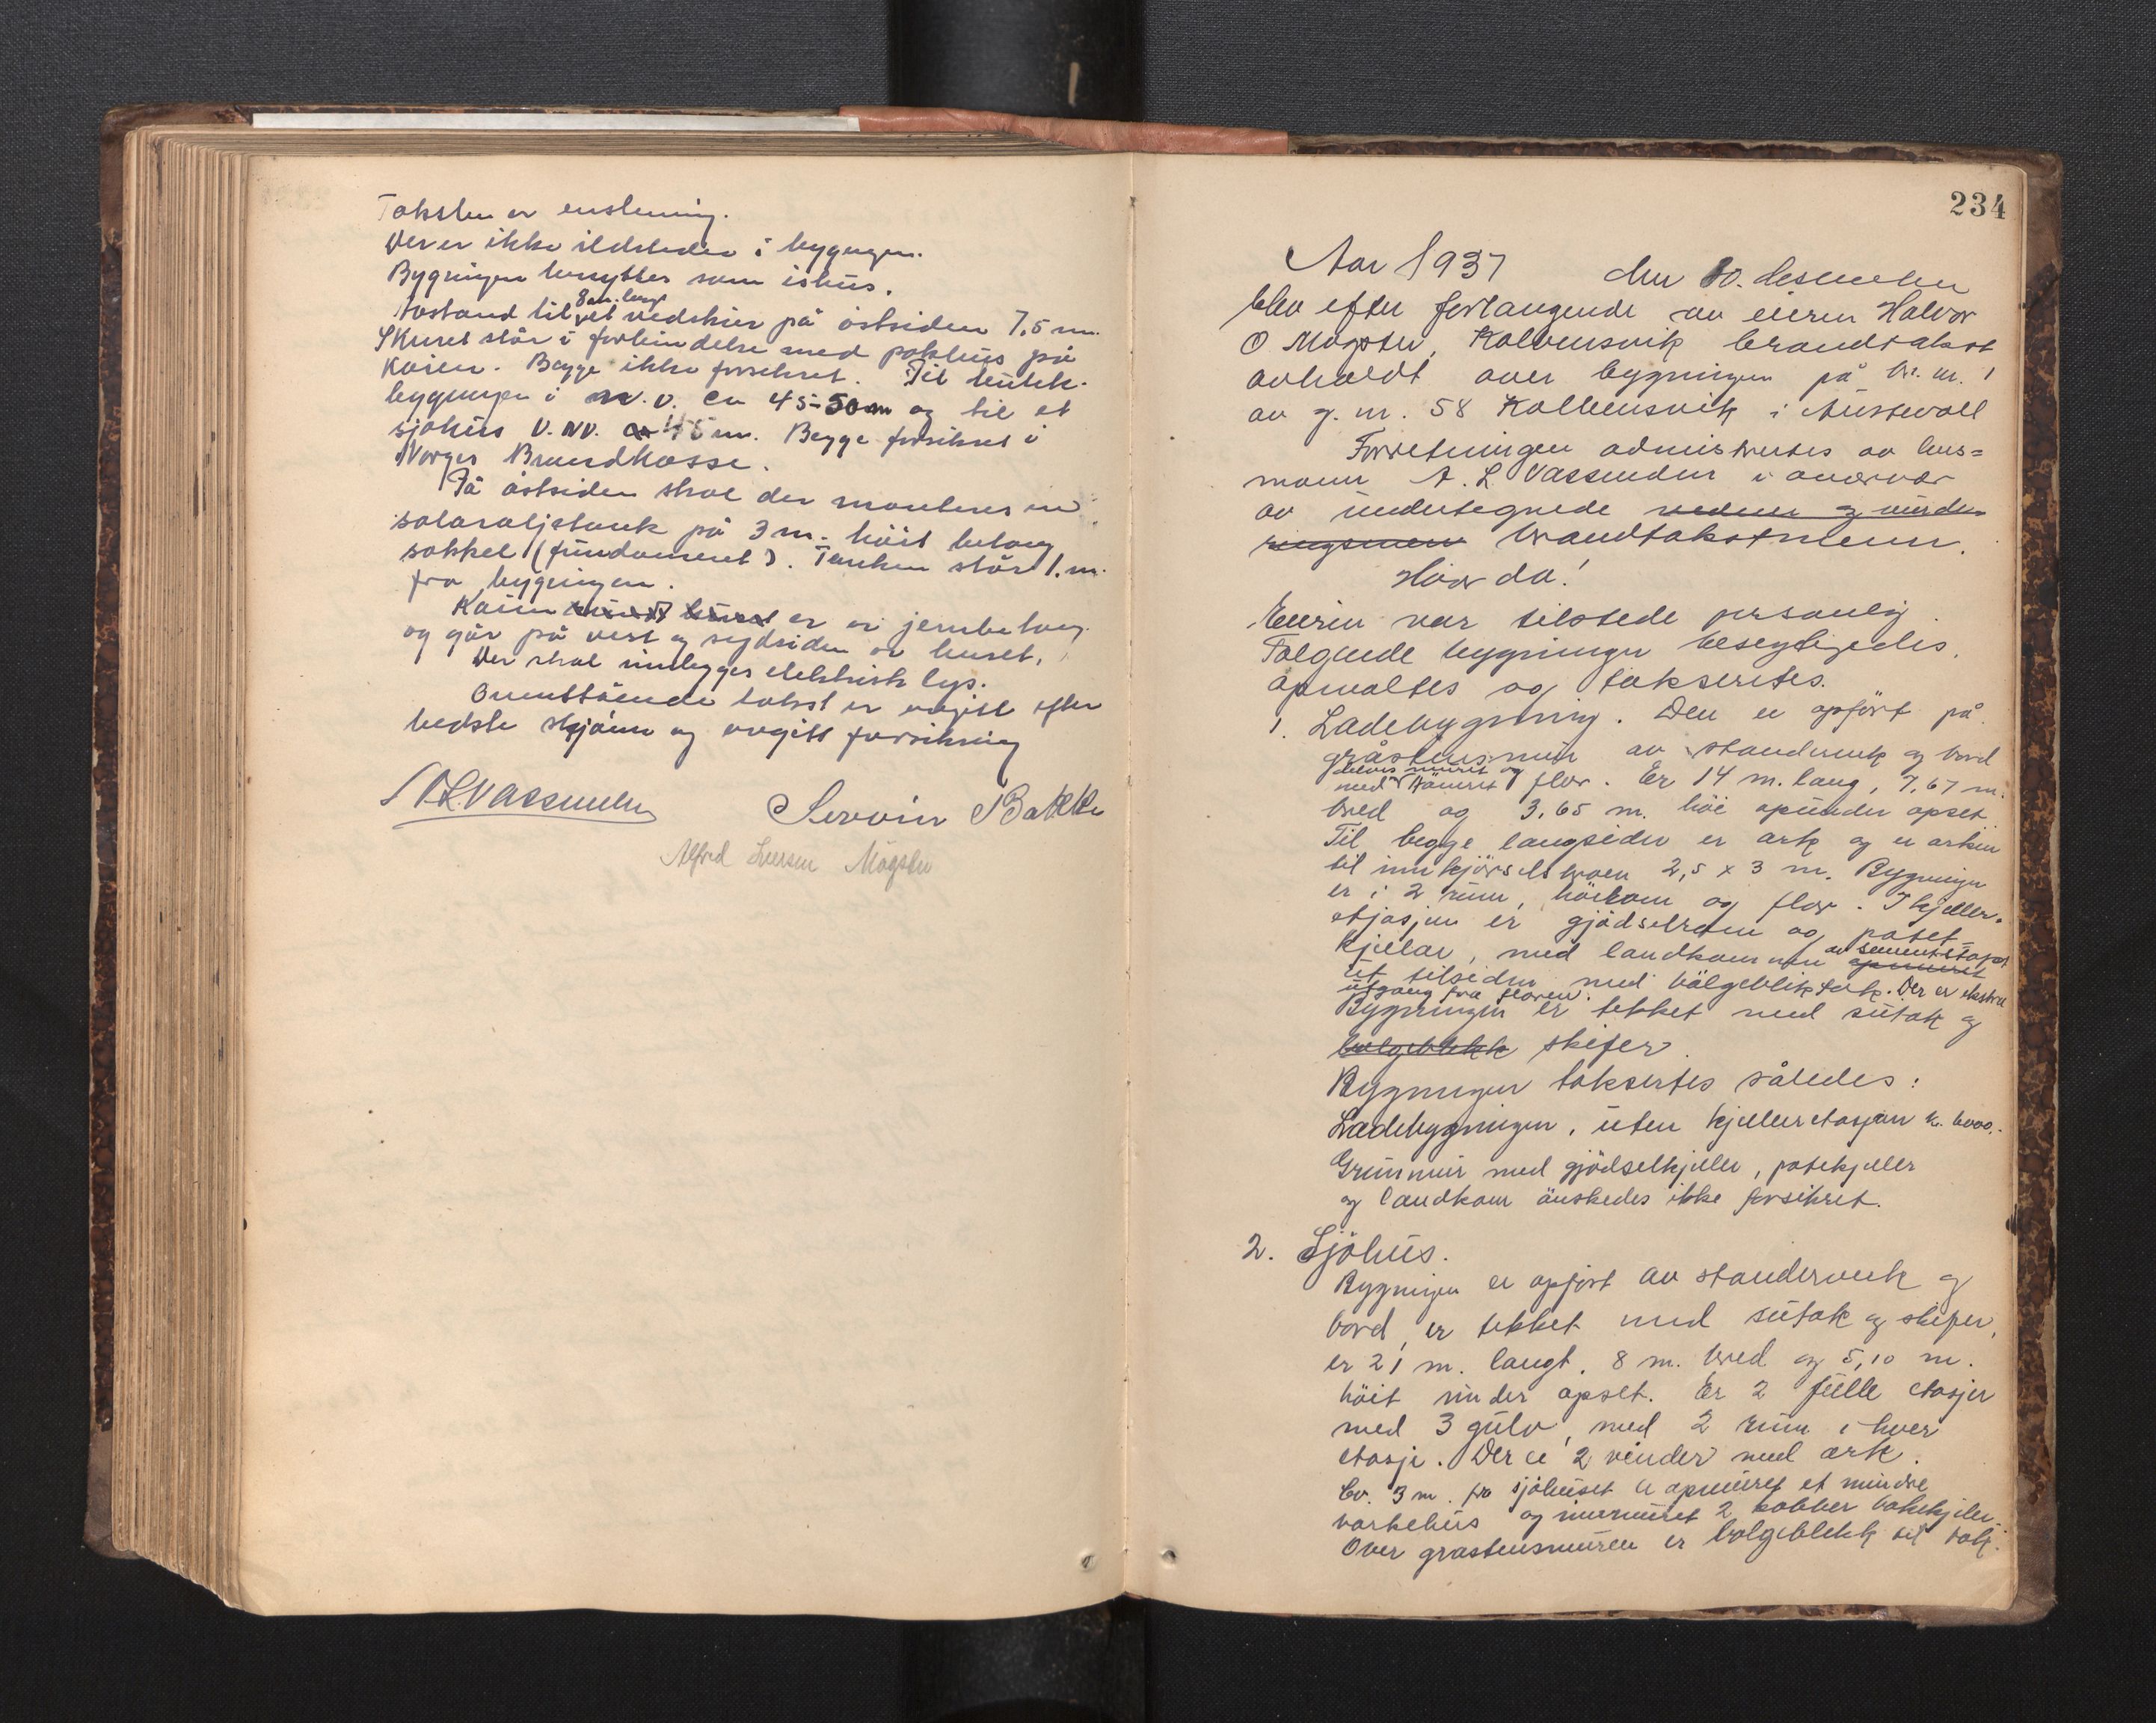 Taksten er enstemmig.
Der er ikke ildsteder i bygningen.
Bygningen benyttes som ishus.
8 m. langt
Avstand til et vedskur på østsiden 7,5 m.
Skuret står i forbindelse med pakhus på
kaien. Begge ikke forsikret. Til butikk-
bygningen i n.v. ca 45-50 m og til et
sjøhus V.NV. ca 45 m. Begge forsikret i
Norges Brandkasse.
På østsiden skal der monteres en
solaroljetank på 3 m. höit betong
sokkel (fundament). Tanken står 1. m.
fra bygningen.
Kaien er av jernbetong
og går på vest og sydsiden av huset.
Der skal innlegges elektrisk lys.
Ovenstående takst er avgitt efter
bedste skjönn og avgitt forsikring
A L Vassenden Servin Bakke
Alfred Iversen Møgster
234
Aar 1937 den 10. desember
blev efter forlangende av eieren Halvor
O Møgster, Kolbensvik brandtakst
avholdt over bygningen på br. nr. 1
av g. nr. 58 Kolbensvik i Austevoll
Forretningen administrertes av lens=
mann A. L Vassenden i overvær
av undertegnede
brandtakstmenn.
Hvor da!
Eieren var tilstede personlig.
Følgende bygninger besegtigedes,
opmaltes og takseretes.
1. Ladebygning. Den er opfört på
gråstensmur av standerverk og bord
delvis muret og
med tömret flor. Er 14 m. lang, 7,67 m.
bred og 3,65 m. höi opunder opset
Til begge langsider er ark og er arken
til innkjörselsbroen 2,5 x 3 m. Bygningen
er i 2 rum, höirom og flor. I kjeller-
etjasjen er gjödselrom og potet-
kjelar, med landkom av sementstöpt
ut tilsiden med bölgebliktak. Der er ekstra
utgang fra floren.
Bygningen er tekket med sutak og
bolgeblekk skifer.
Bygningen taksertes således:
Ladebygningen, uten kjelleretasjen kr. 6000.-
Grunnmur med gjödselkjeller, potetkjeller
og landkom önskedes ikke forsikret.
2. Sjöhus.
Bygningen er opfört av standerverk og
bord, er tekket med sutak og skifer,
er 21 m. langt, 8 m. bred og 5,10 m.
höit under opset. Er 2 fulle etasjer
med 3 gulv, med 2 rum i hver
etasje. Der er 2 vinder med ark.
Cv. 3 m. fra sjöhuset er opmuret et mindre
barkehus og innmuret 2 kobber barkekjeler.
Over grastensmuren er bolgeblekk til tak.